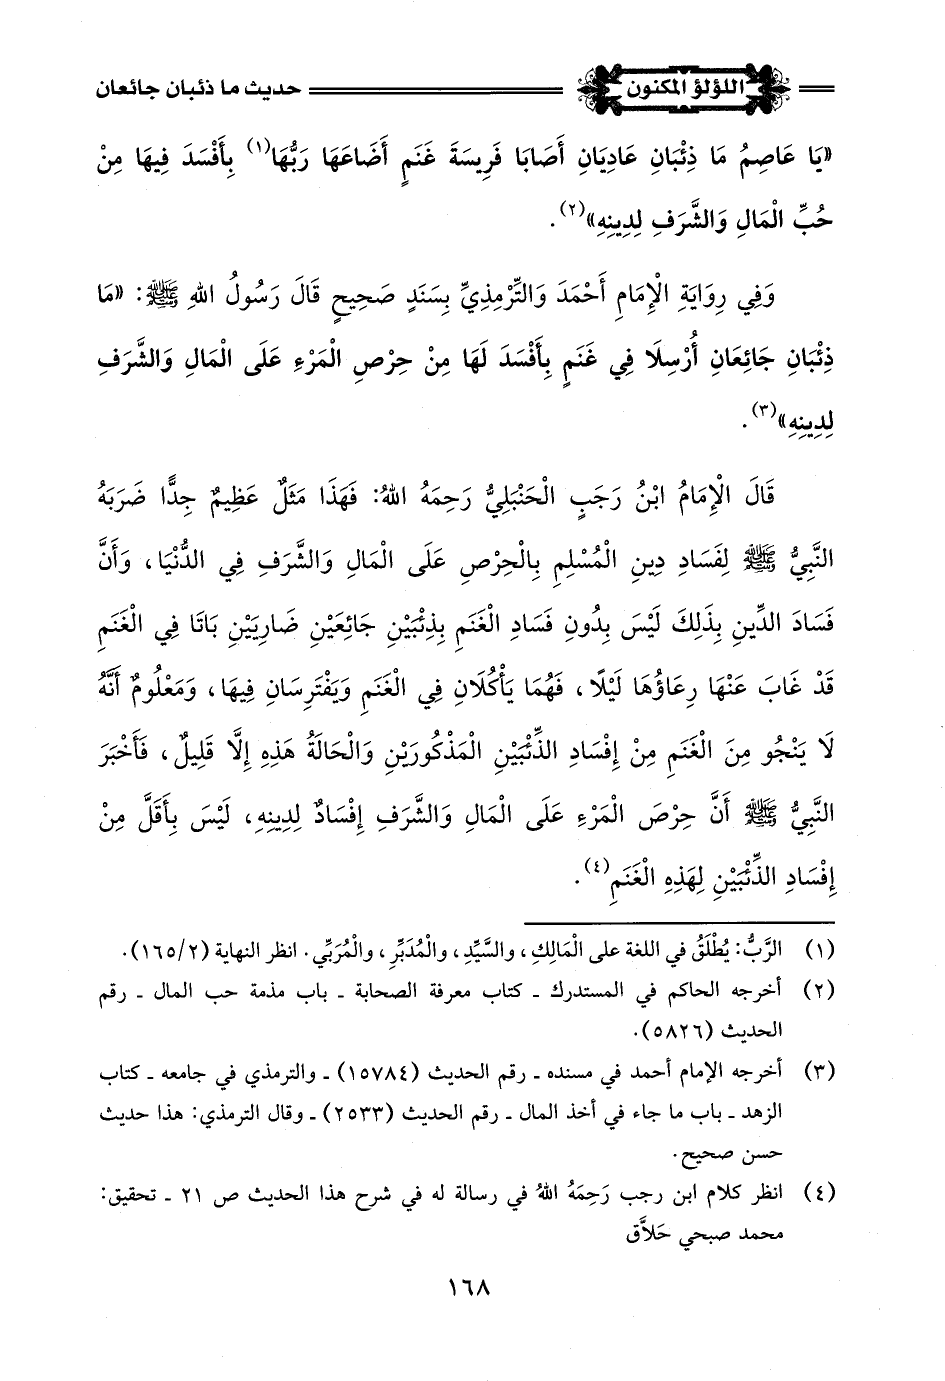 اللؤلؤ المكنون حديث ما ذئبان جائعان
«يَا عَاصِمُ مَا ذِئْبَانِ عَادِيَانِ أَصَابَا فَرِيسَةَ غَنَمٍ أَضَاعَهَا رَبُّهَا(١) بِأَفْسَدَ فِيهَا مِنْ
حُبِّ الْمَالِ وَالشَّرَفِ لِدِينِهِ»(٢).
وَفِي رِوَايَةِ الْإِمَامِ أَحْمَدَ وَالتِّرْمِذِيِّ بِسَنَدٍ صَحِيحٍ قَالَ رَسُولُ اللهِ ﷺ: «مَا
ذِئْبَانِ جَائِعَانِ أُرْسِلَا فِي غَنَمٍ بِأَفْسَدَ لَهَا مِنْ حِرْصِ الْمَرْءِ عَلَى الْمَالِ وَالشَّرَفِ
لِدِينِهِ»(٣).
قَالَ الْإِمَامُ ابْنُ رَجَبٍ الْحَنْبَلِيُّ رَحِمَهُ اللهُ: فَهَذَا مَثَلٌ عَظِيمٌ جِدًّا ضَرَبَهُ
النَّبِيُّ ﷺ لِفَسَادِ دِينِ الْمُسْلِمِ بِالْحِرْصِ عَلَى الْمَالِ وَالشَّرَفِ فِي الدُّنْيَا، وَأَنَّ
فَسَادَ الدِّينِ بِذَلِكَ لَيْسَ بِدُونِ فَسَادِ الْغَنَمِ بِذِئْبَيْنِ جَائِعَيْنِ ضَارِيَيْنِ بَاتَا فِي الْغَنَمِ
قَدْ غَابَ عَنْهَا رِعَاؤُهَا لَيْلًا، فَهُمَا يَأْكُلَانِ فِي الْغَنَمِ وَيَفْتَرِسَانِ فِيهَا، وَمَعْلُومٌ أَنَّهُ
لَا يَنْجُو مِنَ الْغَنَمِ مِنْ إِفْسَادِ الذِّئْبَيْنِ الْمَذْكُورَيْنِ وَالْحَالَةُ هَذِهِ إِلَّا قَلِيلٌ، فَأَخْبَرَ
النَّبِيُّ ﷺ أَنَّ حِرْصَ الْمَرْءِ عَلَى الْمَالِ وَالشَّرَفِ إِفْسَادٌ لِدِينِهِ، لَيْسَ بِأَقَلَّ مِنْ
إِفْسَادِ الذِّئْبَيْنِ لِهَذِهِ الْغَنَمِ(٤).
(١) الرَّبُّ: يُطْلَقُ في اللغة على الْمَالِكِ، والسَّيِّدِ، والْمُدَبِّرِ، والْمُرَبِّي. انظر النهاية (٢/١٦٥).
(٢) أخرجه الحاكم في المستدرك ـ كتاب معرفة الصحابة ـ باب مذمة حب المال ـ رقم
الحديث (٥٨٢٦).
(٣) أخرجه الإمام أحمد في مسنده ـ رقم الحديث (١٥٧٨٤) ـ والترمذي في جامعه ـ كتاب
الزهد ـ باب ما جاء في أخذ المال ـ رقم الحديث (٢٥٣٣) ـ وقال الترمذي: هذا حديث
حسن صحيح.
(٤) انظر كلام ابن رجب رَحِمَهُ اللهُ في رسالة له في شرح هذا الحديث ص ٢١ ـ تحقيق:
محمد صبحي حَلاَّق
١٦٨